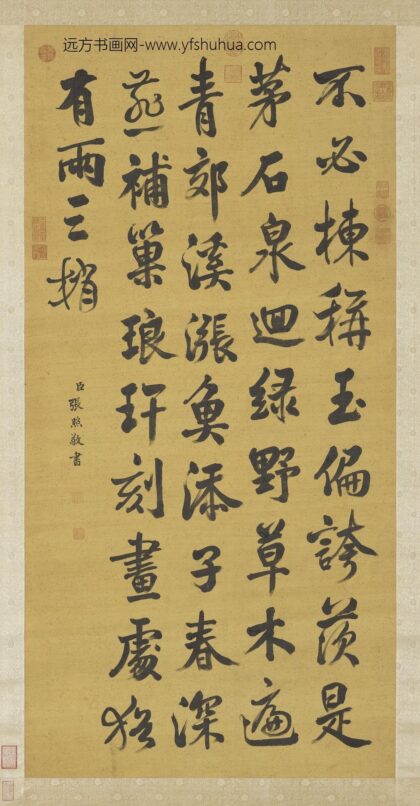 远方书画网-www.yfshuhua.com
不必棟稱玉偏誇茨是
茅石泉迴緑野草木遍
青郊溪漲魚添子春深
燕補巢琅玕刻畫處猶
有兩三梢
臣張照敬書